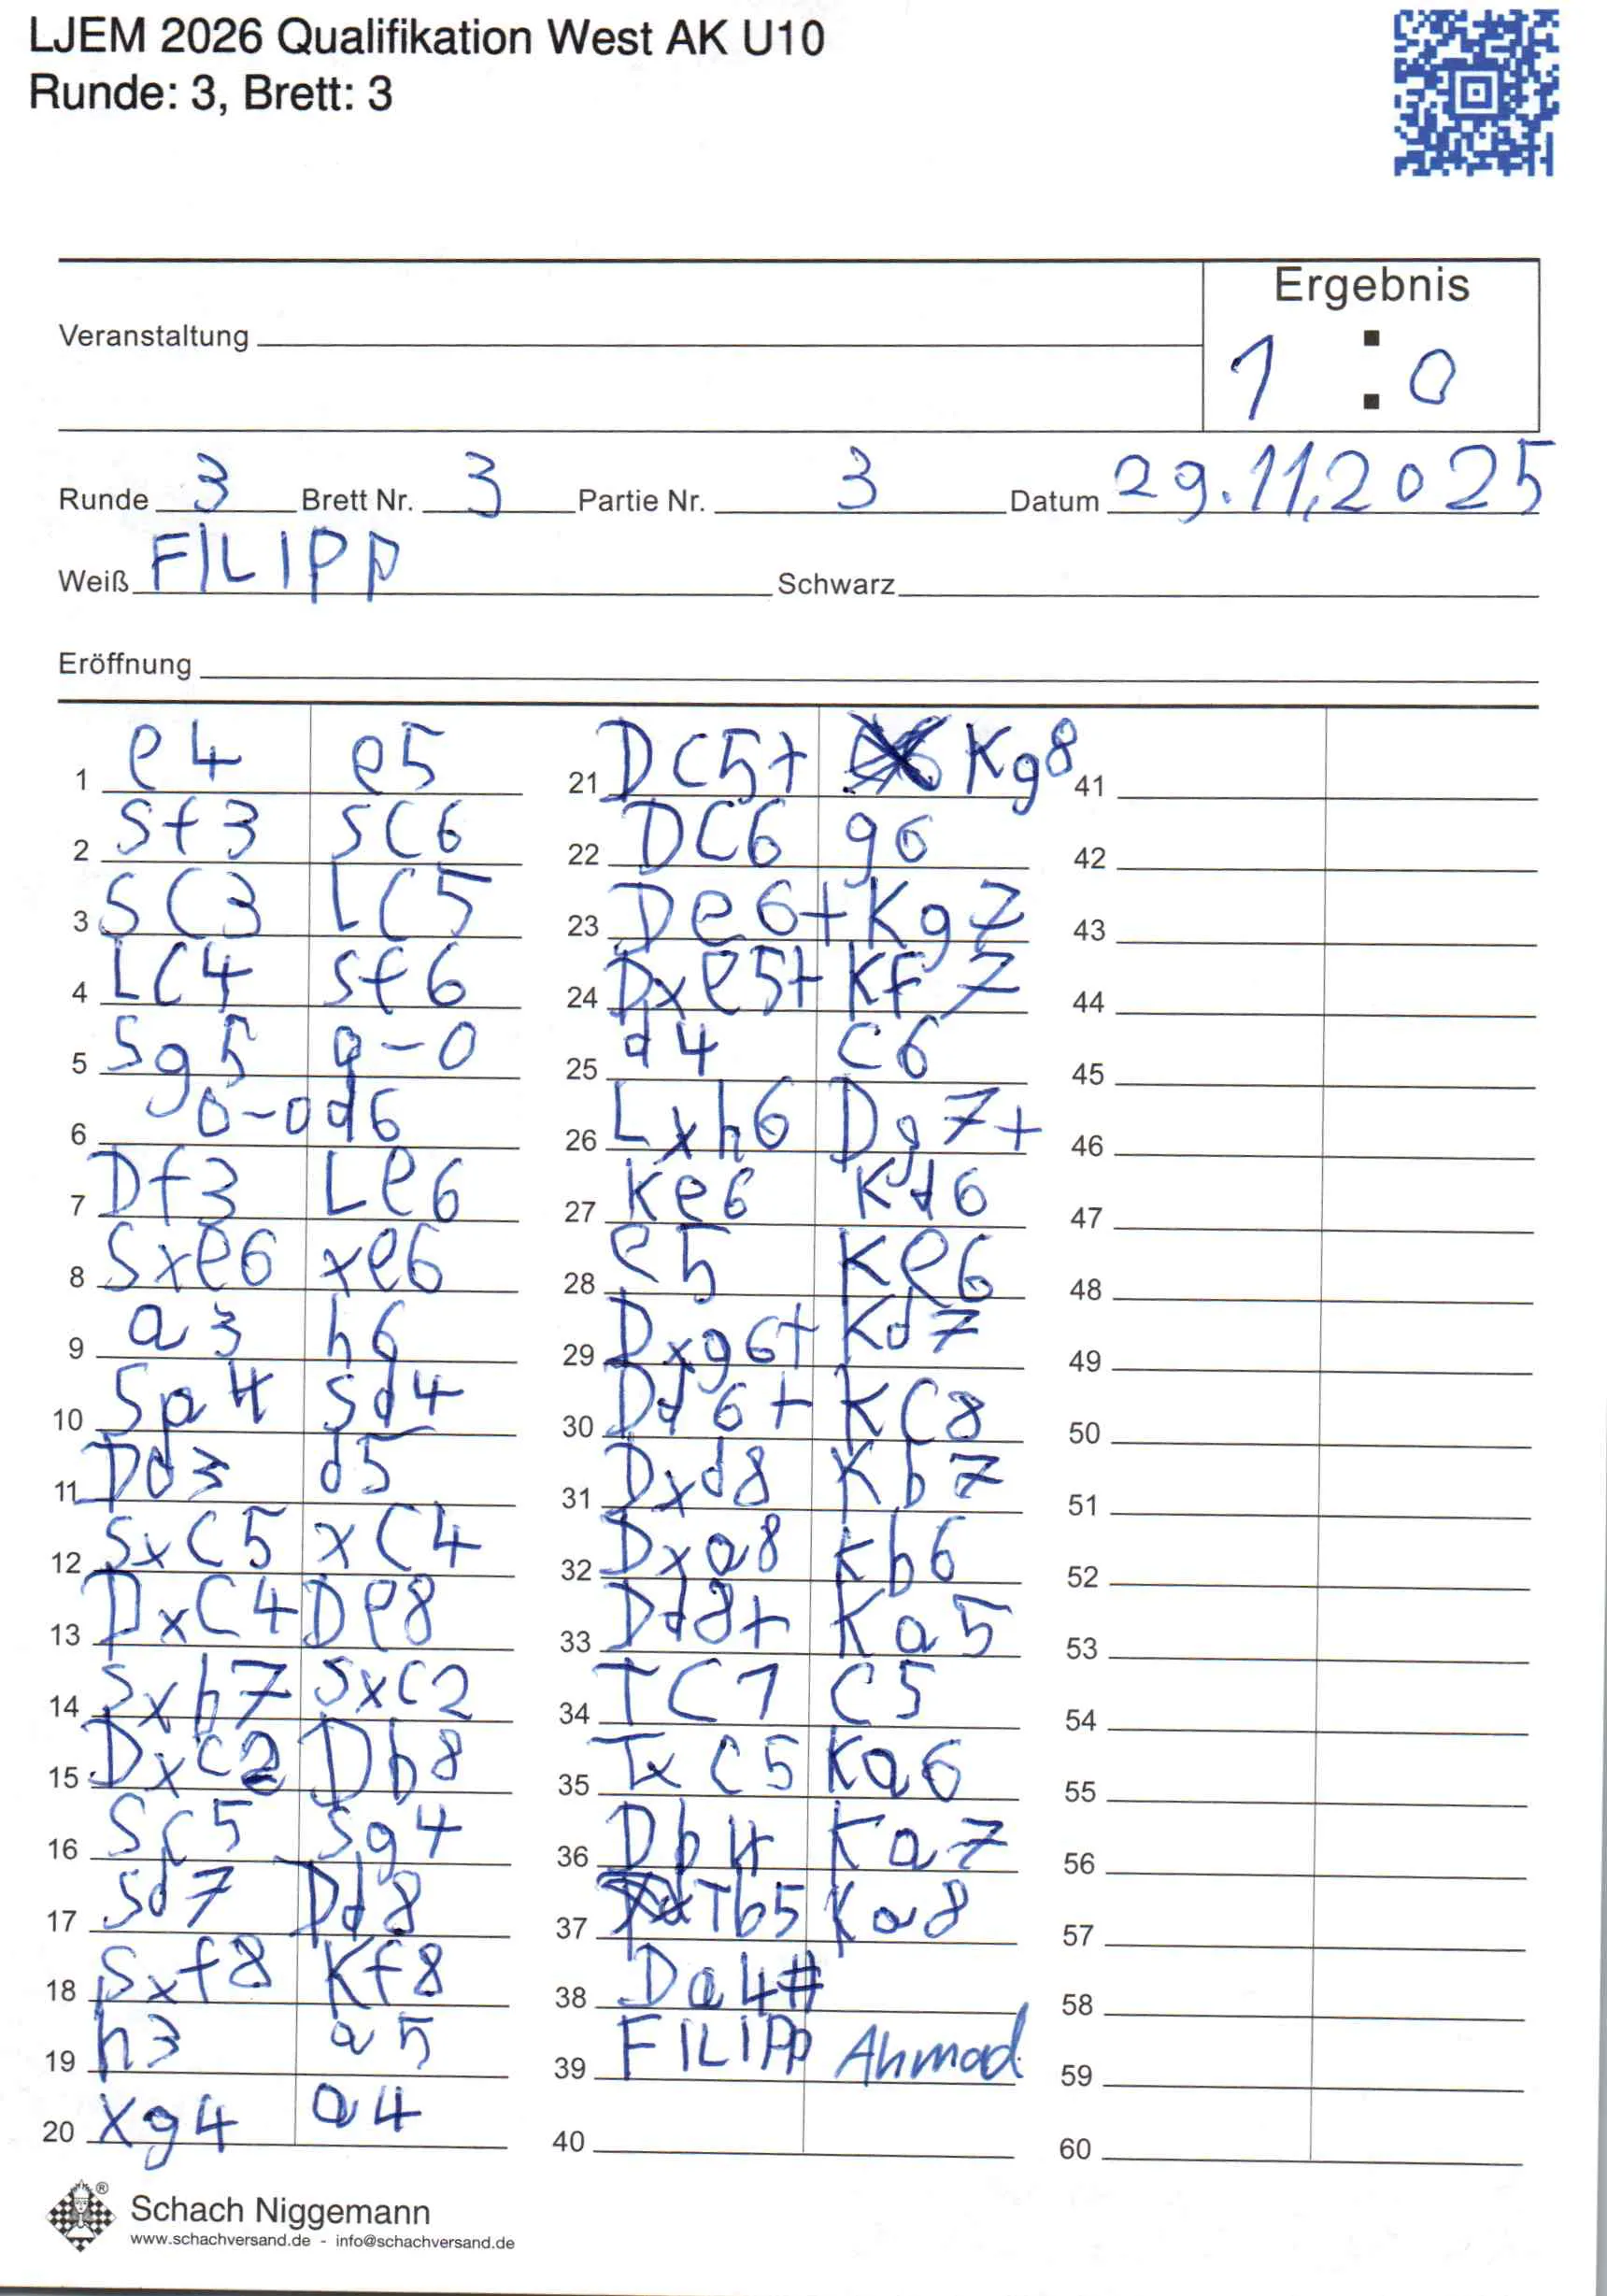 LJEM 2026 Qualifikation West AK U10
Runde: 3, Brett: 3
Ergebnis
Veranstaltung
1 : 0
Runde 3 Brett Nr. 3 Partie Nr. 3 Datum 29.11.2025
Weiß FILIPP Schwarz
Eröffnung
1 e4 e5
2 Sf3 SC6
3 SC3 LC5
4 LC4 Sf6
5 Sg5 0-0
6 0-0 d6
7 Df3 Le6
8 Sxe6 xe6
9 a3 h6
10 Sa4 Sd4
11 Dd3 d5
12 SxC5 xC4
13 DxC4 De8
14 Sxb7 SxC2
15 DxC2 Db8
16 SC5 Sg4
17 Sd7 Dd8
18 Sxf8 Kf8
19 h3 a5
20 xg4 a4
21 DC5+ Kg8
22 DC6 g6
23 De6+ Kg7
24 Dxe5+ Kf7
25 d4 C6
26 Lxh6 Dg7+
27 Ke6 Kd6
28 e5 Ke6
29 Dxg6+ Kd7
30 Dd6+ KC8
31 Dxd8 Kb7
32 Dxa8 Kb6
33 Dd8+ Ka5
34 TC1 C5
35 TxC5 Ka6
36 Db4 Ka7
37 Tb5 Ka8
38 Da4#
39 FILIPP Ahmad
40
41
42
43
44
45
46
47
48
49
50
51
52
53
54
55
56
57
58
59
60
Schach Niggemann
www.schachversand.de - info@schachversand.de